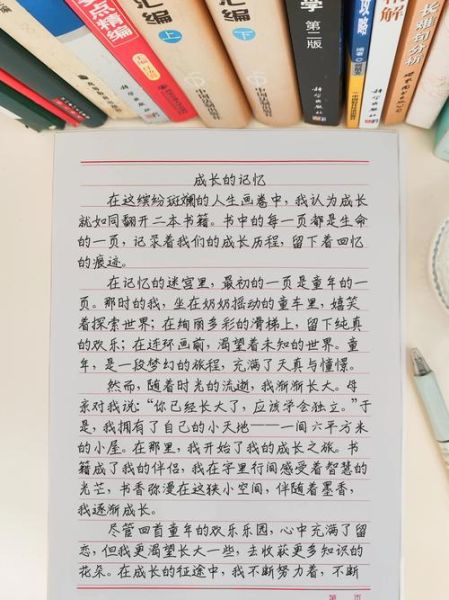 点精编
汇编
上
汇编
下
学
第二版
科学出版社
攻略
编著
解
长难句分析
成长的记忆
在这缤纷斑斓的人生画卷中,我认为成长
就如同翻开二本书籍。书中的每一页都是生命
的一页,记录着我们的成长历程,留下着回忆
的痕迹。
在记忆的迷宫里,最初的一页是童年的一
页。那时的我,坐在奶奶摇动的童车里,嬉笑
着探索世界;在绚丽多彩的滑梯上,留下纯真
的欢乐;在连环画前,渴望着未知的世界。童
年,是一段梦幻的旅程,充满了天真与憧憬。
然而,随着时光的流逝,我渐渐长大。母
亲对我说:“你已经长大了,应该学会独立。”于
是,我拥有了自己的小天地——一间六平方米
的小屋。在那里,我开始了我的成长之旅。书
籍成了我的伴侣,我在字里行间感受着智慧的
光芒,书香弥漫在这狭小空间,伴随着墨香,
我逐渐成长。
尽管回首童年的欢乐乐园,心中充满了留
恋,但我更渴望长大一些,去收获更多知识的
花朵。在成长的征途中,我不断努力着,不断
第 页